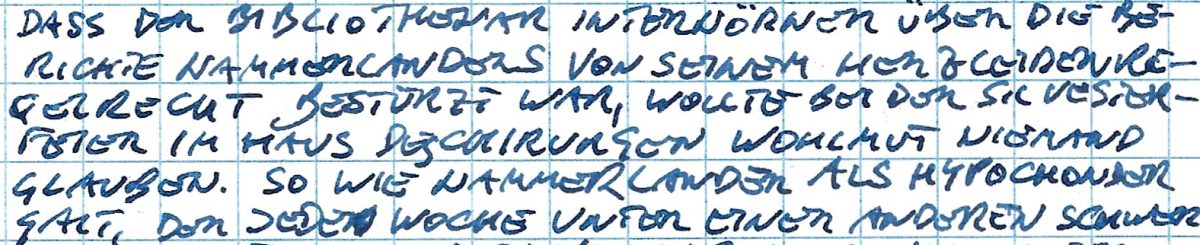 DASS DER BIBLIOTHEKAR INTERHÖRNER ÜBER DIE BE-
RICHTE KAMMERLANDERS VON SEINEM HERZLEIDEN RE-
GELRECHT BESTÜRZT WAR, WOLLTE BEI DER SILVESTER-
FEIER IM HAUS DES CHIRURGEN WOHLMUT NIEMAND
GLAUBEN. SO WIE KAMMERLANDER ALS HYPOCHONDER
GALT, DER JEDE WOCHE UNTER EINER ANDEREN SCHWER